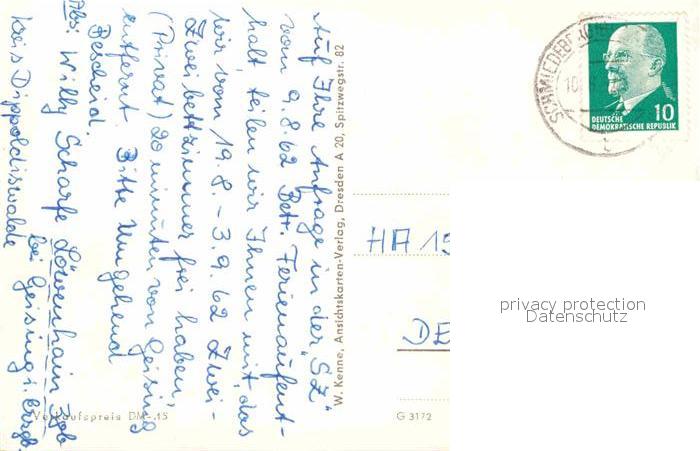 Auf Ihre Anfrage in der „SZ"
vom 9.8.62 Betr. Ferienaufent-
halt, teilen wir Ihnen mit, das
wir vom 19.8. – 3.9.62 Zwei-
Zweibettzimmer frei haben,
(Privat) 20 minuten von Geising
entfernt Bitte Umgehend
Bescheid.
Abs: Willy Scharfe Löwenhain
bei Geising i. Erzgb.
Kreis Dippoldiswalde
W. Kenne, Ansichtskarten-Verlag, Dresden A 20, Spitzwegstr. 82
Verkaufspreis DM -.15
G 3172
SCHMIEDEBERG
10
DEUTSCHE
DEMOKRATISCHE REPUBLIK
HA 15
DE
privacy protection
Datenschutz